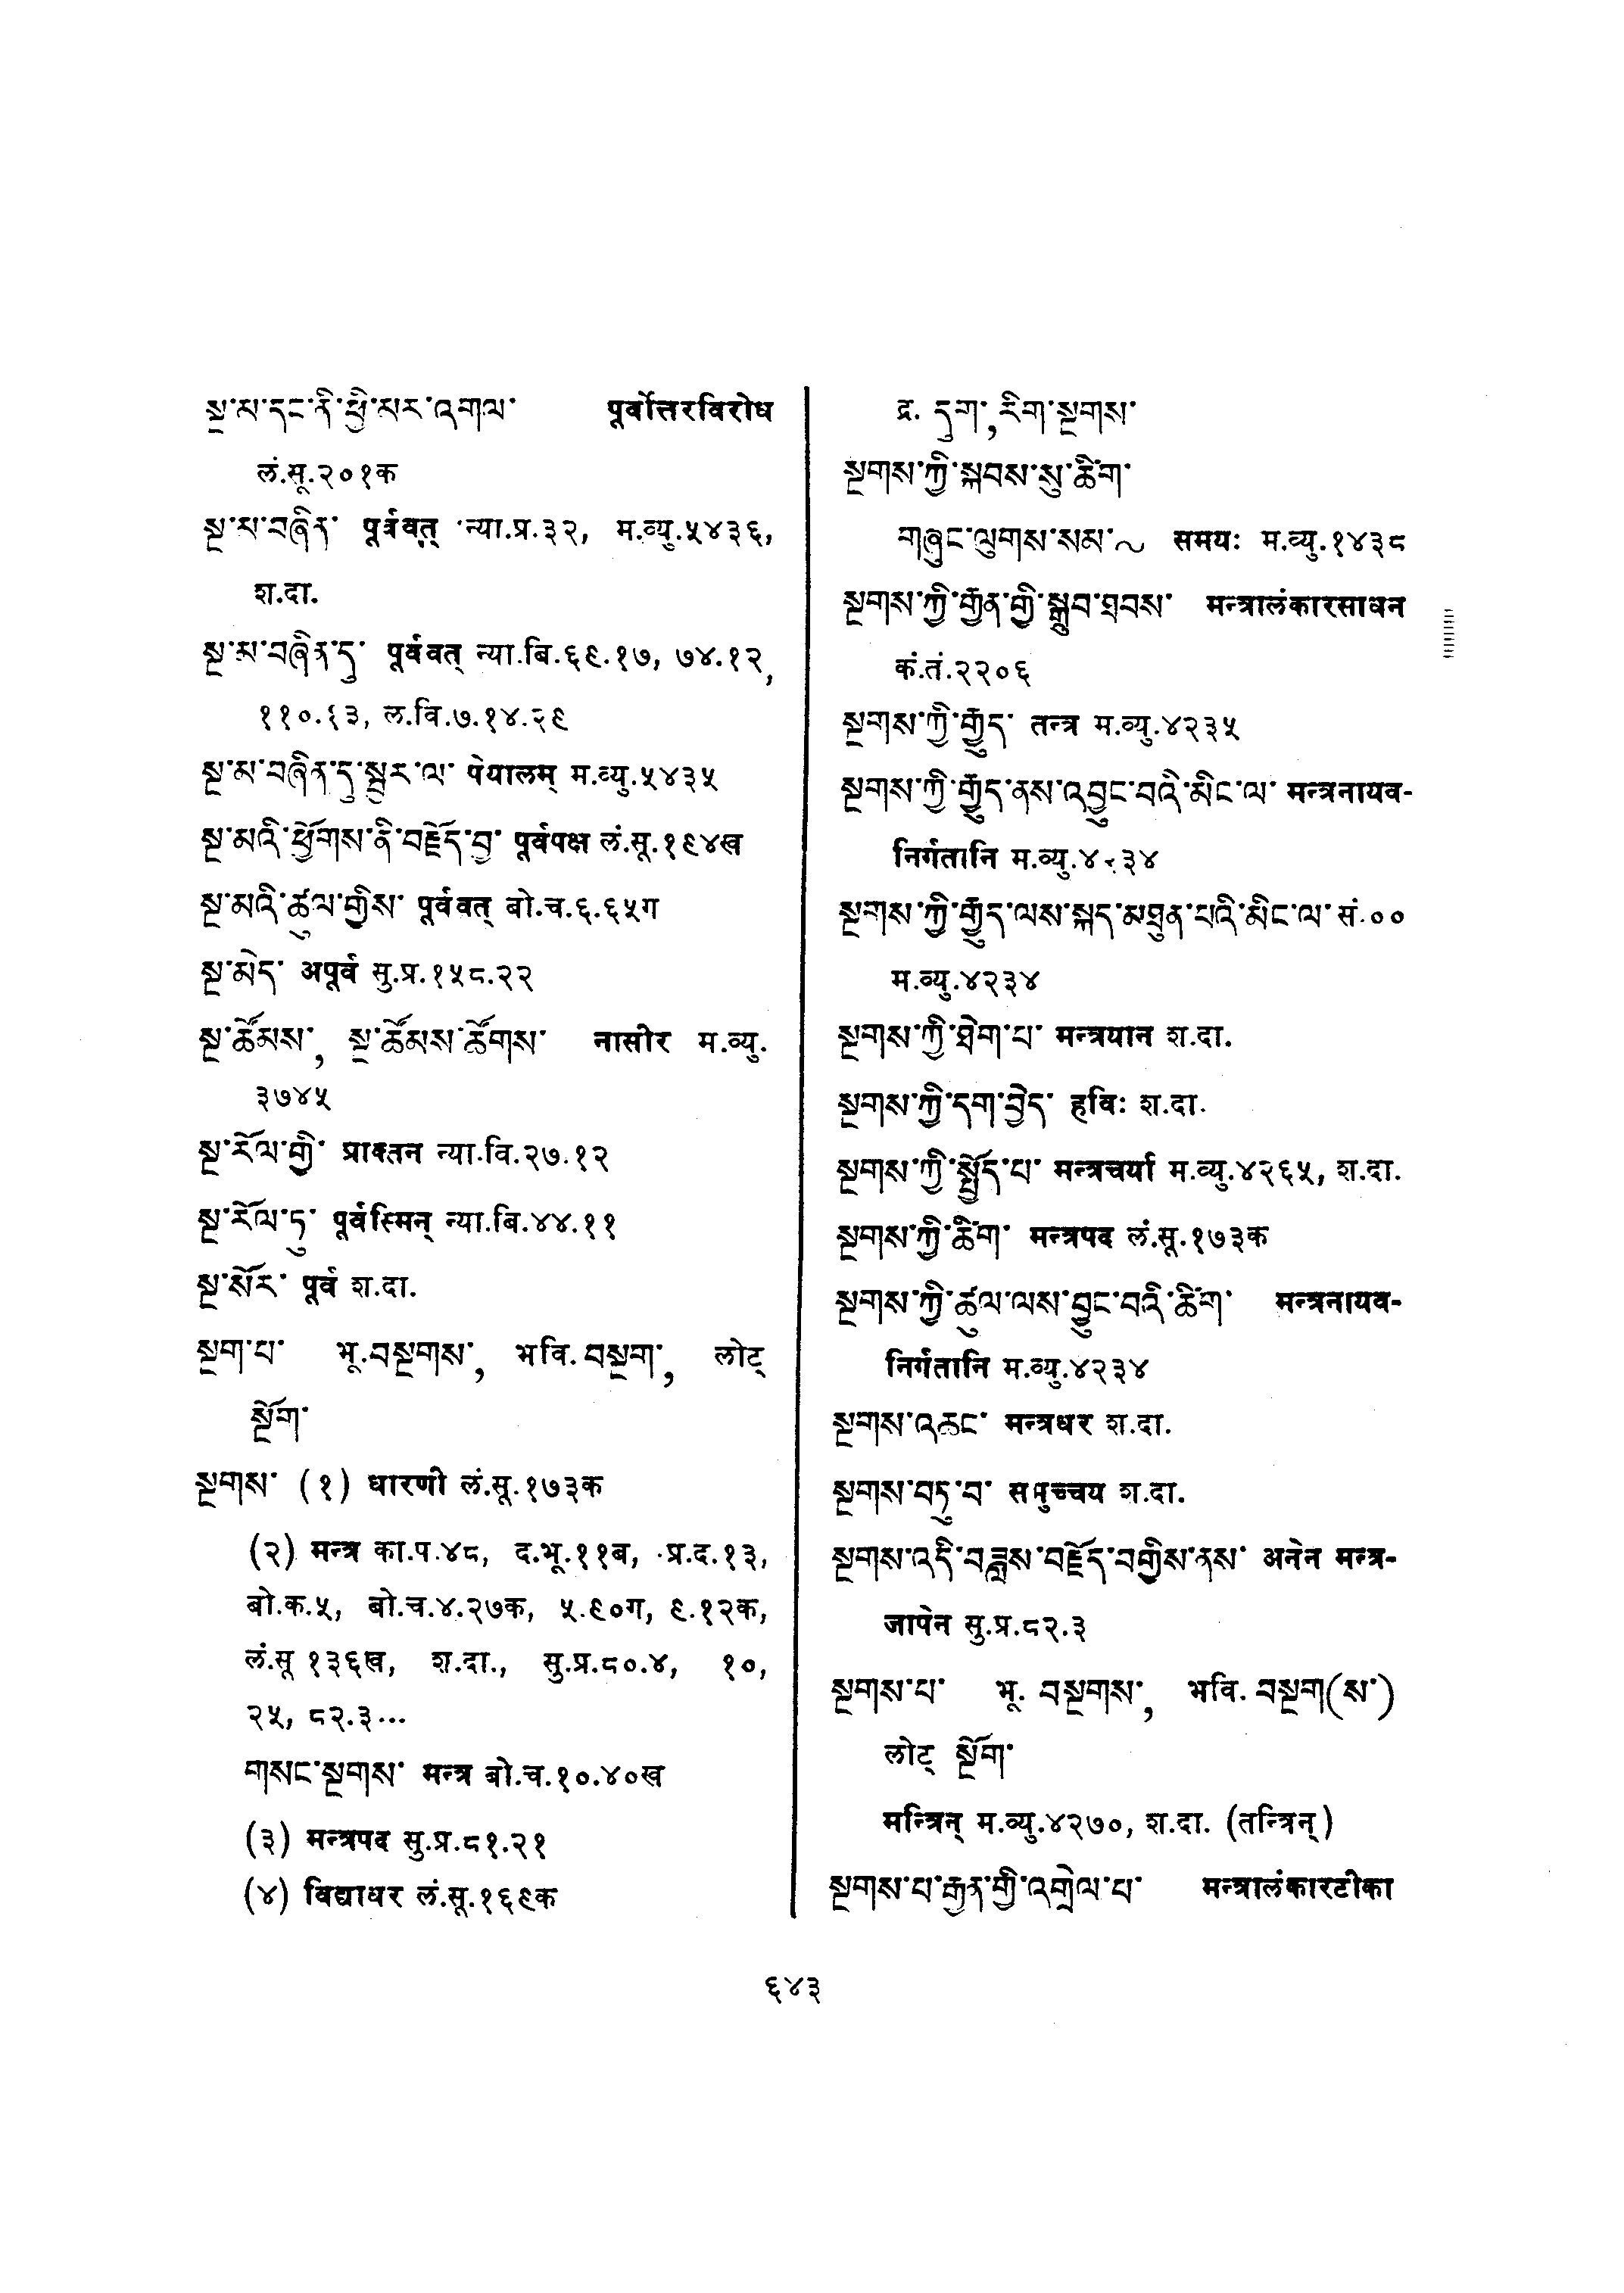 སྔ་མ་དང་ནི་ཕྱི་མར་འགལ་ पूर्वोत्तरविरोध
लं.सू.२०१क
སྔ་མ་བཞིན་ पूर्ववत् न्या.प्र.३२, म.व्यु.५४३६,
श.दा.
སྔ་མ་བཞིན་དུ་ पूर्ववत् न्या.बि.६९.१७, ७४.१२,
११०.१३, ल.वि.७.१४.२९
སྔ་མ་བཞིན་དུ་སྦྱར་ལ་ पेयालम् म.व्यु.५४३५
སྔ་མའི་ཕྱོགས་ནི་བརྗོད་བྱ་ पूर्वपक्ष लं.सू.१९४ख
སྔ་མའི་ཚུལ་གྱིས་ पूर्ववत् बो.च.६.६५ग
སྔ་མེད་ अपूर्व सु.प्र.१५८.२२
སྔ་ཚོམས་, སྔ་ཚོམས་ཚོགས་ नासीर म.व्यु.
३७४५
སྔ་རོལ་གྱི་ प्राक्तन न्या.वि.२७.१२
སྔ་རོལ་ཏུ་ पूर्वस्मिन् न्या.बि.४४.११
སྔ་སོར་ पूर्व श.दा.
སྔག་པ་ भू.བསྔགས་, भवि.བསྔག་, लोट्
སྔོག་
སྔགས་ (१) धारणी लं.सू.१७३क
(२) मन्त्र का.प.४८, द.भू.११ब, प्र.द.१३,
बो.क.५, बो.च.४.२७क, ५.९०ग, ९.१२क,
लं.सू १३६ख, श.दा., सु.प्र.८०.४, १०,
२५, ८२.३...
གསང་སྔགས་ मन्त्र बो.च.१०.४०ख
(३) मन्त्रपद सु.प्र.८१.२१
(४) विद्याधर लं.सू.१६९क
द्र. དུག་, རིག་སྔགས་
སྔགས་ཀྱི་སྐབས་སུ་ཚིག་
གཞུང་ལུགས་སམ་~ समयः म.व्यु.१४३८
སྔགས་ཀྱི་རྒྱན་གྱི་སྒྲུབ་ཐབས་ मन्त्रालंकारसाधन
कं.तं.२२०६
སྔགས་ཀྱི་རྒྱུད་ तन्त्र म.व्यु.४२३५
སྔགས་ཀྱི་རྒྱུད་ནས་འབྱུང་བའི་མིང་ལ་ मन्त्रनायव-
निर्गतानि म.व्यु.४२३४
སྔགས་ཀྱི་རྒྱུད་ལས་སྐད་མཐུན་པའི་མིང་ལ་ सं.००
म.व्यु.४२३४
སྔགས་ཀྱི་ཐེག་པ་ मन्त्रयान श.दा.
སྔགས་ཀྱི་དག་བྱེད་ हविः श.दा.
སྔགས་ཀྱི་སྤྱོད་པ་ मन्त्रचर्या म.व्यु.४२६५, श.दा.
སྔགས་ཀྱི་ཚིག་ मन्त्रपद लं.सू.१७३क
སྔགས་ཀྱི་ཚུལ་ལས་བྱུང་བའི་ཚིག་ मन्त्रनायव-
निर्गतानि म.व्यु.४२३४
སྔགས་འཆང་ मन्त्रधर श.दा.
སྔགས་བཏུ་བ་ समुच्चय श.दा.
སྔགས་འདི་བཟླས་བརྗོད་བགྱིས་ནས་ अनेन मन्त्र-
जापेन सु.प्र.८२.३
སྔགས་པ་ भू. བསྔགས་, भवि. བསྔག(ས་)
लोट् སྔོག་
मन्त्रिन् म.व्यु.४२७०, श.दा. (तन्त्रिन्)
སྔགས་པ་རྒྱན་གྱི་འགྲེལ་པ་ मन्त्रालंकारटीका
६४३